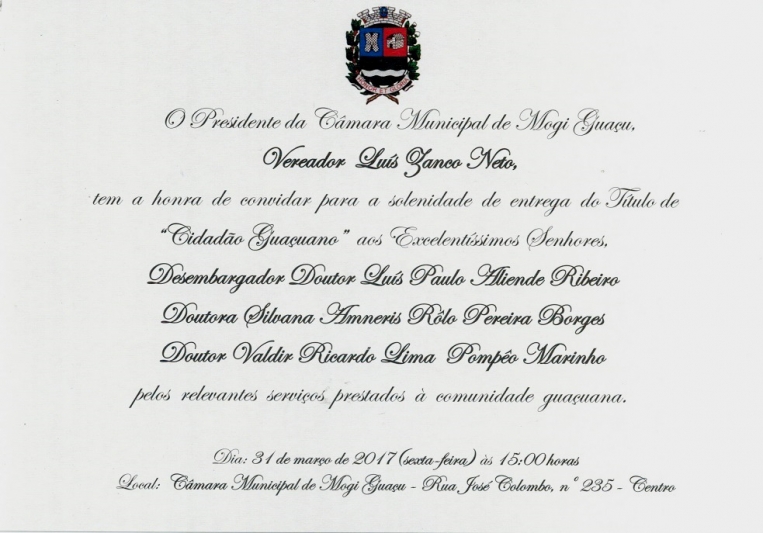 O Presidente da Câmara Municipal de Mogi Guaçu,
Vereador Luís Zanco Neto,
tem a honra de convidar para a solenidade de entrega do Título de
“Cidadão Guaçuano” aos Excelentíssimos Senhores,
Desembargador Doutor Luís Paulo Aliende Ribeiro
Doutora Silvana Amneris Rôlo Pereira Borges
Doutor Valdir Ricardo Lima Pompêo Marinho
pelos relevantes serviços prestados à comunidade guaçuana.
Dia: 31 de março de 2017 (sexta-feira) às 15:00 horas
Local: Câmara Municipal de Mogi Guaçu - Rua José Colombo, nº 235 - Centro